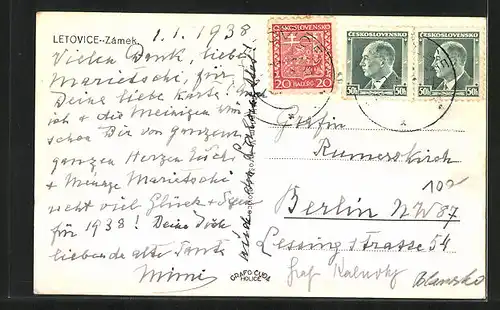 LETOVICE--Zámek.
1.1.1938.
Vielen Dank, liebe
Marietschi, für
Deine liebe Karte!
ich & die Meinigen
schen Dir von ganzem
ganzen Herzen Euch
& Marietschi
recht viel Glück &
für 1938! Deine Dich
liebende alte Tante
Mimi
GRAFO ČUDA
HOLICE
ČESKOSLOVENSKO
20 HALÉŘŮ 20
ČESKOSLOVENSKO
50h 50h
ČESKOSLOVENSKO
50h 50h
Gräfin
Rumerskirch
102
Berlin NW 87
Lessing strasse 54
Graf Kalnoky
Blansko